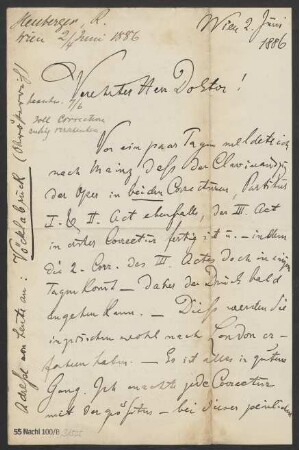 Heuberger, R.
Wien 2/Juni 1886
Wien 2. Juni
1886
Verehrter Herr Doktor!
beantw. 7/6
soll Correctur
ruhig versenden
Vor ein paar Tagen meldete ich
nach Mainz daß der Clavierauszug
der Oper in beiden Correcturen, Partitur
I. & II. Act ebenfalls, der III. Act
in erster Correctur fertig ist u. – indem
die 2. Corr. des III. Actes doch in einigen
Tagen kommt – daher der Druck bald
angehen kann. – Dieß werden Sie
inzwischen wohl nach London er-
fahren haben. – Es ist alles in gutem
Gang. Ich machte jede Correctur
mit der größten – bei dieser peinlichen
Adresse von heute an: Vöcklabruck (Oberösterreich)
55 Nachl 100/B